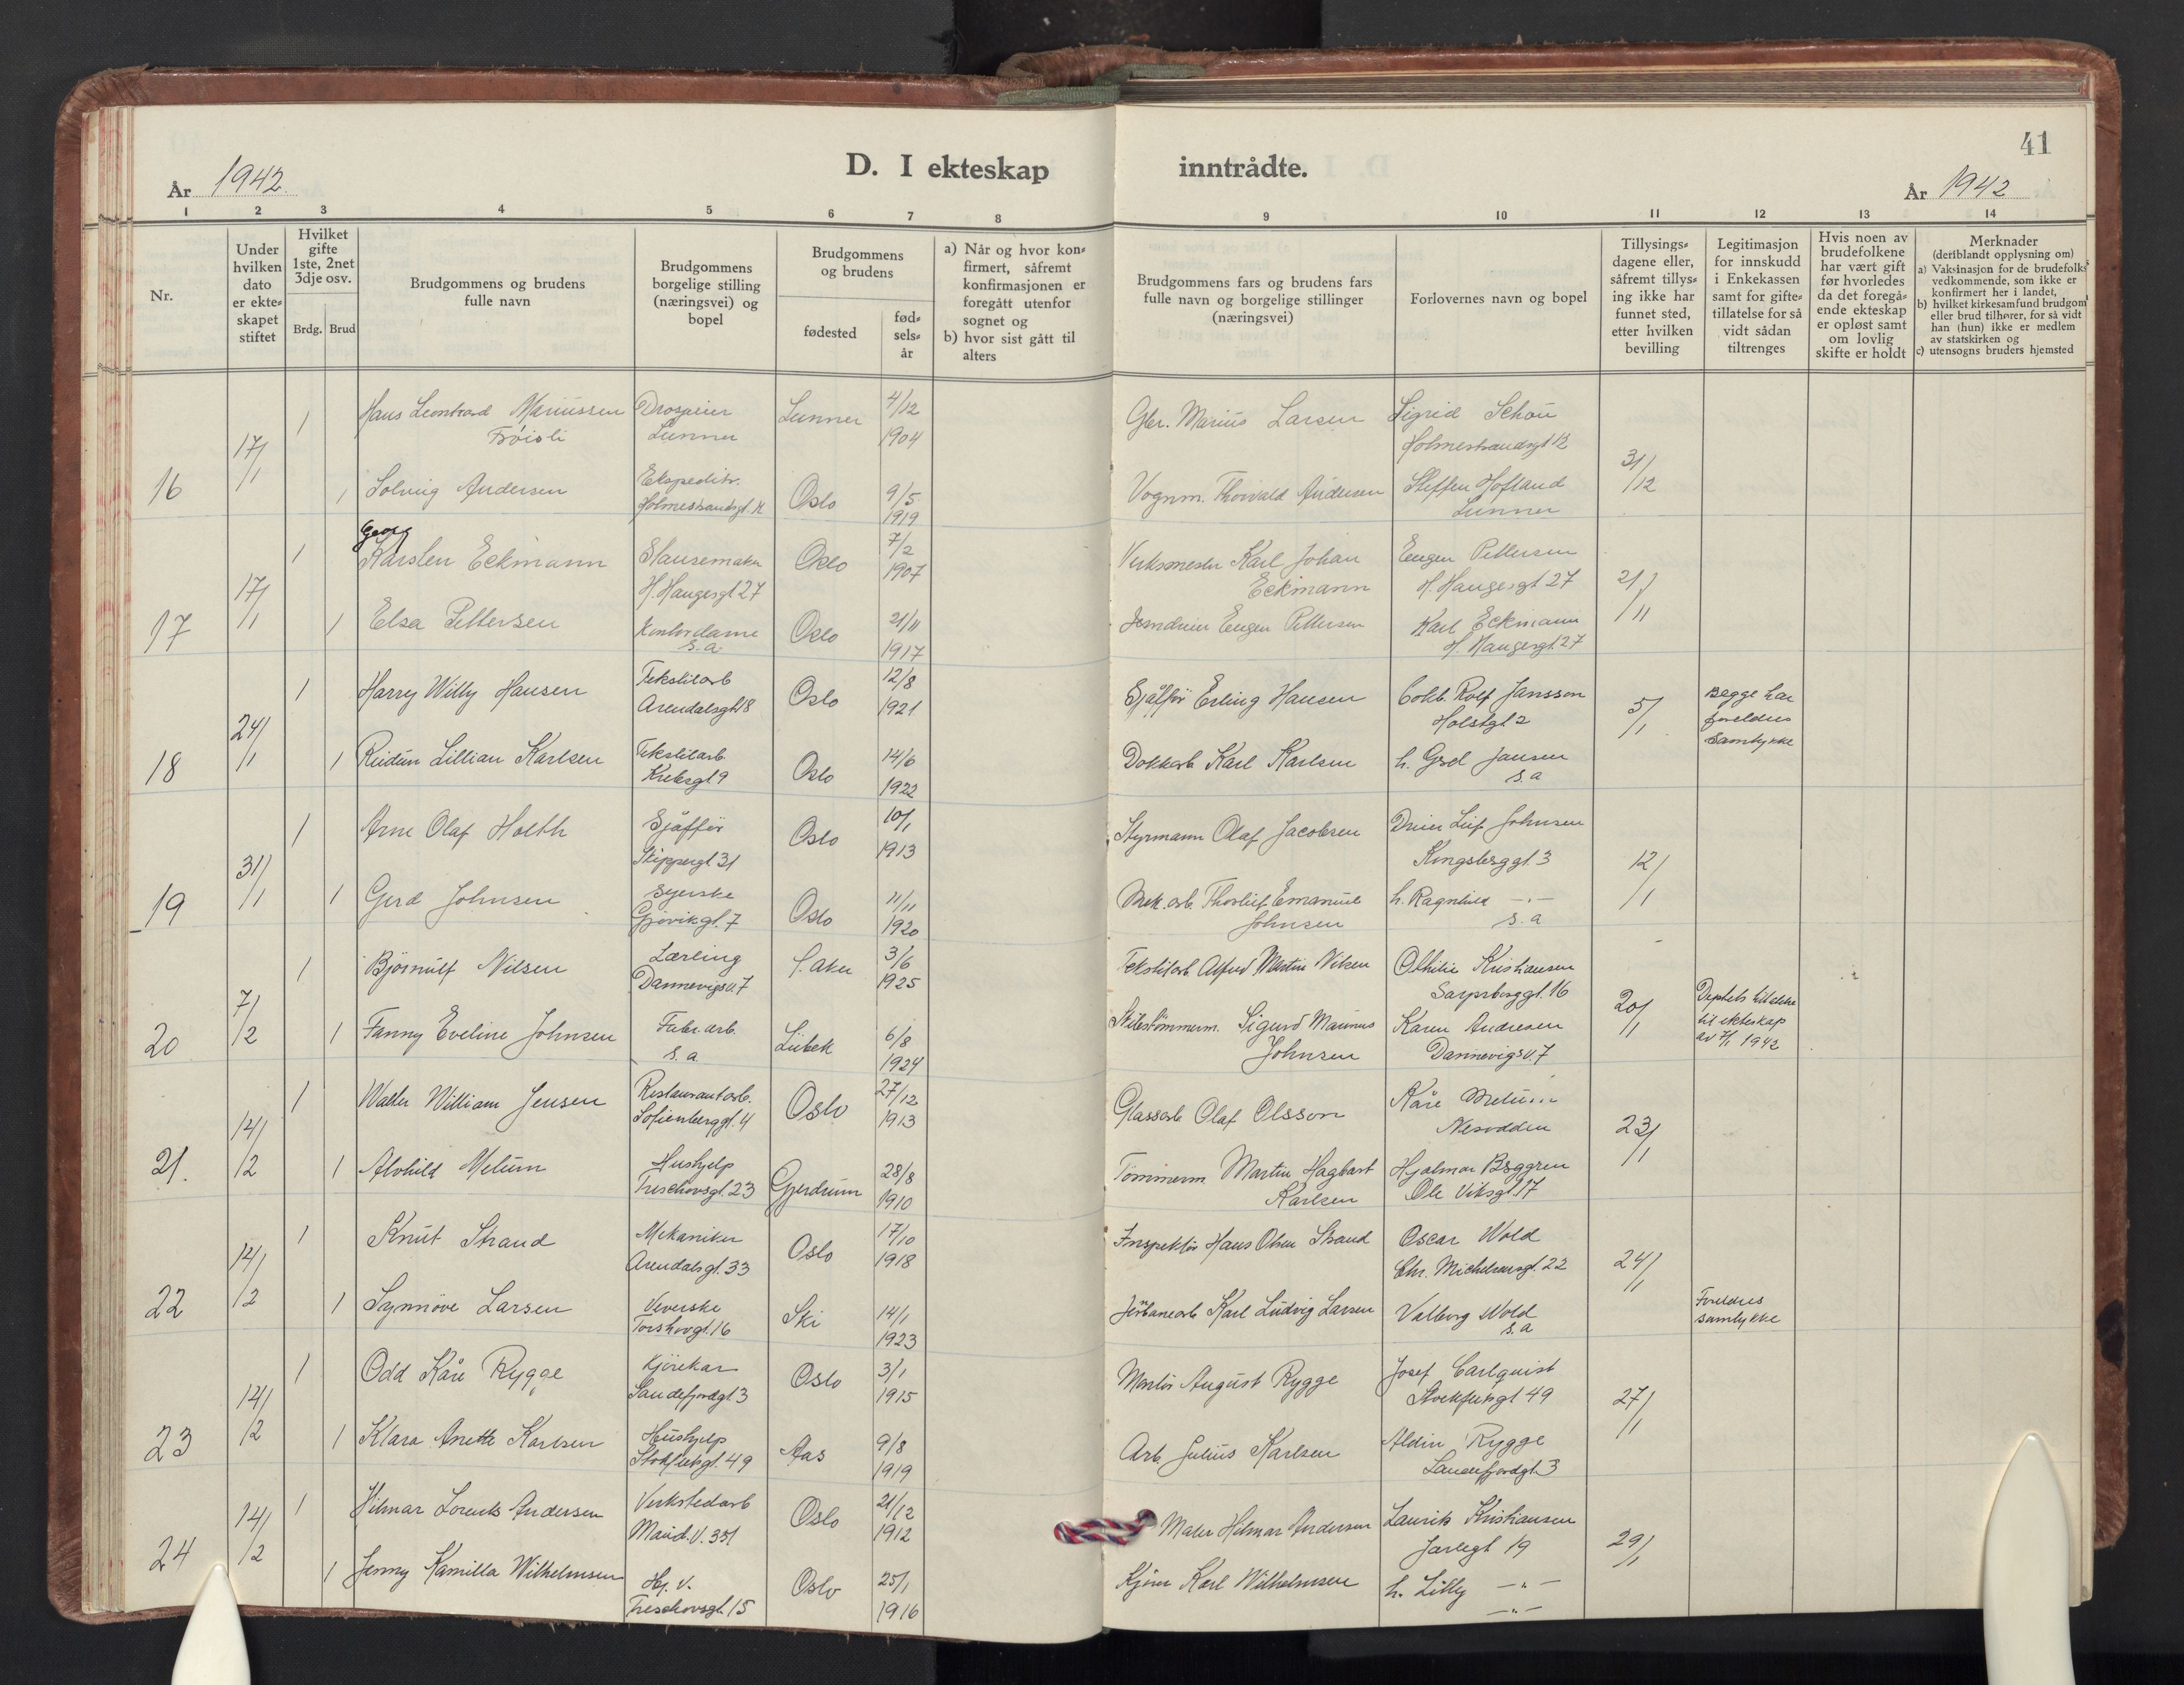 41
D. I ekteskap inntrådte.
År 1942
År 1942
1 2 3 4 5 6 7 8 9 10 11 12 13 14
Nr.
Under hvilken dato er ekteskapet stiftet
Hvilket gifte 1ste, 2net 3dje osv.
Brdg. Brud
Brudgommens og brudens fulle navn
Brudgommens borgelige stilling (næringsvei) og bopel
Brudgommens og brudens
fødested
fødselsår
a) Når og hvor konfirmert, såfremt konfirmasjonen er foregått utenfor sognet og
b) hvor sist gått til alters
Brudgommens fars og brudens fars fulle navn og borgelige stillinger (næringsvei)
Forlovernes navn og bopel
Tillysingsdagene eller, såfremt tillysing ikke har funnet sted, etter hvilken bevilling
Legitimasjon for innskudd i Enkekassen samt for giftetillatelse for så vidt sådan tiltrenges
Hvis noen av brudefolkene har vært gift før hvorledes da det foregående ekteskap er opløst samt om lovlig skifte er holdt
Merknader (deriblandt opplysning om)
a) Vaksinasjon for de brudefolks vedkommende, som ikke er konfirmert her i landet,
b) hvilket kirkesamfund brudgom eller brud tilhører, for så vidt han (hun) ikke er medlem av statskirken og
c) utensogns bruders hjemsted
16 17/1
1 Hans Leonhard Mariussen Drosjeier Lunner 4/12 Gbr. Marius Larsen Sigrid Schou
Frøisli Lunner 1904 Holmestrandsgt 12 31/12
1 Solveig Andersen Ekspeditr. Oslo 9/5 Vognm. Thorvald Andersen Steffen Hofland
Holmestrandsgt. 12 1919 Lunner
17 17/1
Georg
1 Karsten Eckmann Stausemaker Oslo 7/2 Verksmester Karl Johan Eugen Pettersen
H. Haugesgt 27 1907 Eckmann H. Haugesgt 27 21/11
1 Elsa Pettersen Kontordame Oslo 21/11 Jerndreier Eugen Pettersen Karl Eckmann
s.a. 1917 H. Haugesgt. 27
18 24/1
1 Harry Willy Hansen Tekstilarb Oslo 12/8 Sjåffør Erling Hansen Rolf Jansson Begge har
Arendalsgt 18 1921 Holstgt 2 5/1 foreldres
samtykke
1 Reidun Lillian Karlsen Tekstilarb Oslo 14/6 Dokkarb Karl Karlsen h. Gerd Jansen
Krebsgt 9 1922 s.a
19 31/1
1 Arne Olaf Holth Sjåffør Oslo 10/1 Styrmann Olaf Jacobsen Dreier Leif Johnsen
Skippergt 31 1913 Kongsberggt. 3 12/1
1 Gerd Johnsen Syerske Oslo 11/11 Mek. arb. Thorleif Emanuel h. Ragnhild —"—
Gjøvikgt. 7 1920 Johnsen s.a
20 7/2
1 Bjørnulf Nilsen Lærling V. Aker 3/6 Tekstilarb Alfred Martin Nilsen Othilie Kristiansen
Dannevigsv. 7 1925 Sarpsborggt. 16 20/1
1 Fanny Eveline Johnsen Fabr. arb. Lübek 6/8 Sigurd Marinus Karen Andresen
s.a 1924 Johnsen Dannevigsv. 7
til ekteskap
1942
21. 14/2
1 Walter William Jensen Restaurantarb. Oslo 27/12 Glassarb Olaf Olsson Kåre Melum
Sofienberggt. 4 1913 Nesodden 23/1
1 Alvhild Melum Hushjelp Gjerdrum 28/8 Tømmerm Martin Hagbart Hjalmar Byggren
Treschowsgt. 23 1910 Karlsen Ole Viksgt. 17
22 14/2
1 Knut Strand Mekaniker Oslo 17/10 Inspektør Hans Olsen Strand Oscar Wold
Arendalsgt. 33 1918 Chr. Michelsensgt. 22 24/1
1 Synnøve Larsen Veverske Ski 14/1 Jernbanearb Karl Ludvig Larsen Valborg Wold Foreldres
Torshovgt. 16 1923 s.a samtykke
23 14/2
1 Odd Kåre Rygge Kjørekar Oslo 3/1 August Rygge Josef Carlquist
Sandefjordgt 3 1915 Stockfletsgt 49 27/1
1 Klara Anette Karlsen Hushjelp Aas 9/8 Arb. Julius Karlsen Aldin Rygge
Stokfletsgt. 49 1919 Sandefjordgt. 3
24 14/2
1 Hilmar Lorents Andersen Verkstedarb Oslo 21/12 Maler Helmar Andersen Laurits Kristiansen
Maud. V. 351 1912 Jarlegt 19 29/1
1 Jenny Kamilla Wilhelmsen Hj. v. Oslo 25/1 Kjører Karl Wilhelmsen h. Lilly —"—
Treschowsgt. 15 1916 —"—